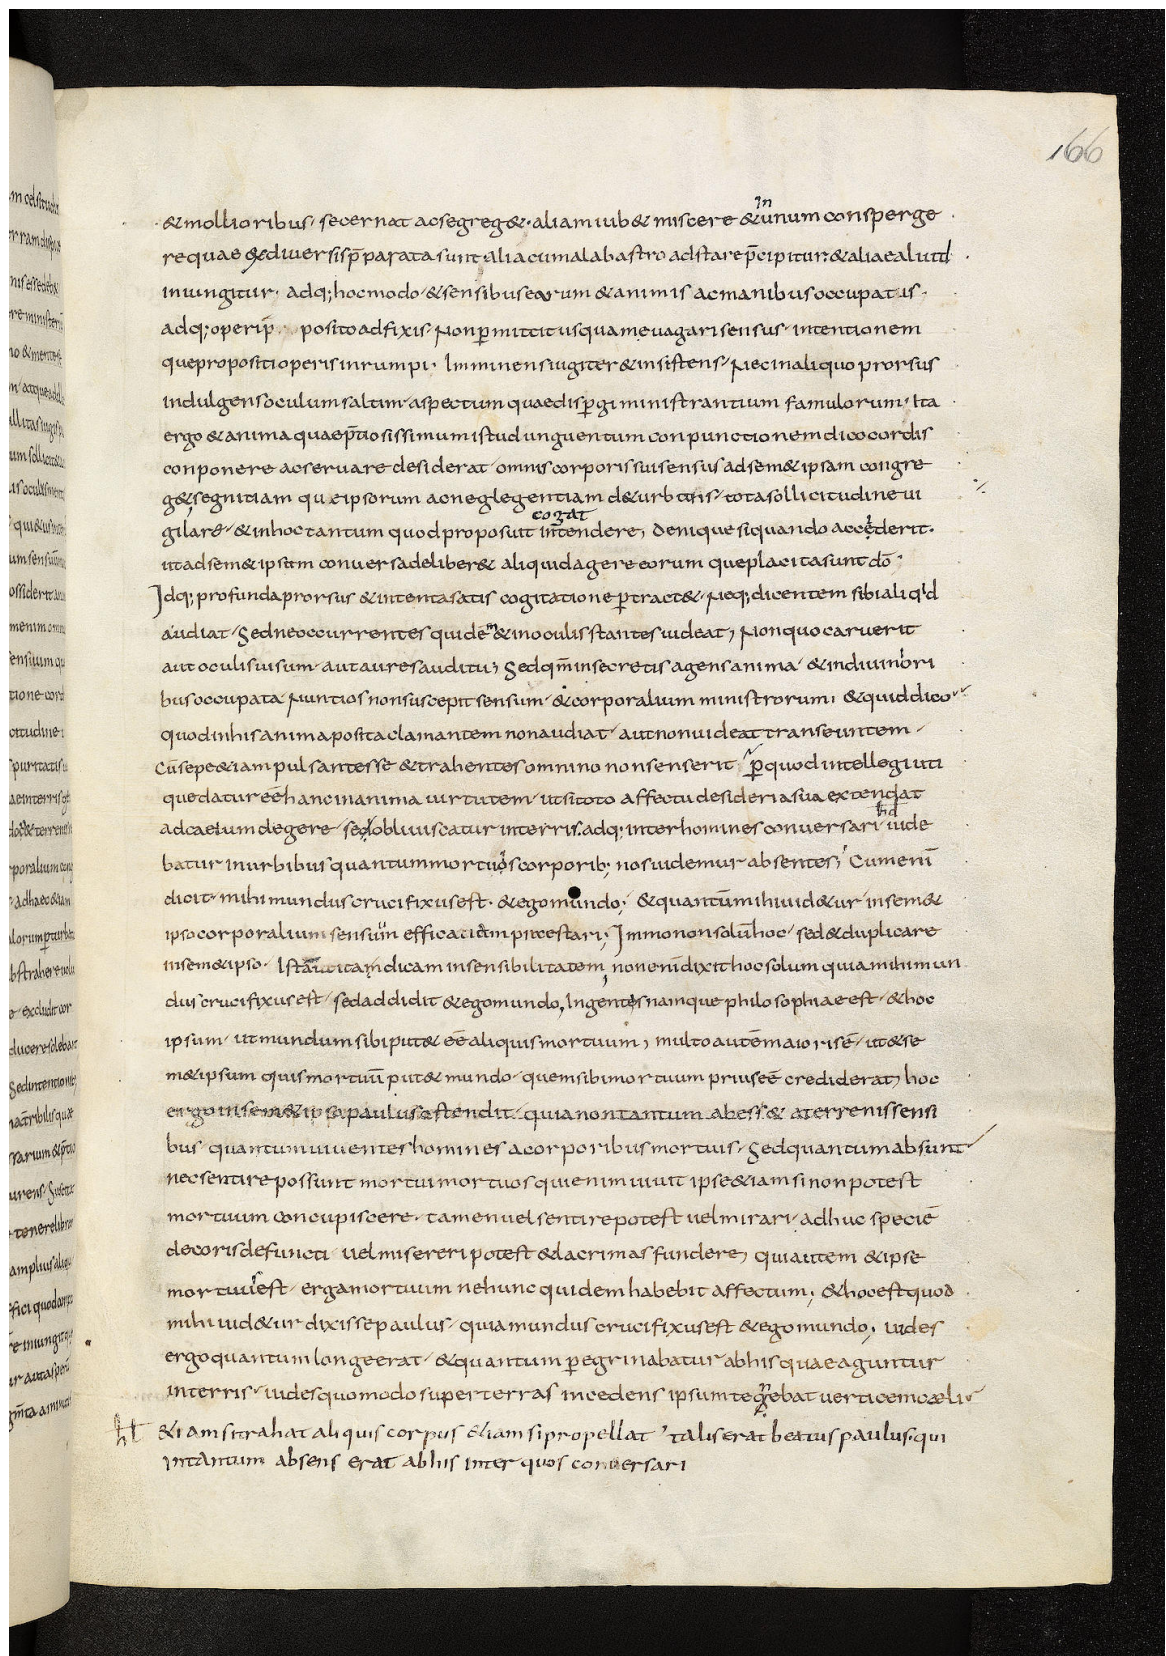 166
& mollioribus · secernat ac segreg& · aliam iub& miscere & in unum consperge
re quae ex diversis p̄parata sunt alia cum alabastro adstare p̄cipitur & aliae aliud
iniungitur · adq; hoc modo · & sensibus earum & animis ac manibus occupatis ·
adq; operi p̄ posito adfixis · Non p̄mittit usquam evagari sensus · intentionem
que propositi operis inrumpi · Imminens iugiter & insistens · Nec in aliquo prorsus
indulgens oculum saltim aspectum quae disp̄gi ministrantium famulorum · Ita
ergo & anima quae p̄tiosissimum istud unguentum conpunctionem dico cordis
conponere ac servare desiderat · omnis corporis sui sensus ad sem& ipsam congre
g& segnitiam que ipsorum ac neglegentiam d&urbans · tota sollicitudine vi
gilare · & in hoc tantum quod proposuit intendere cogat, denique si quando accederit ·
ut ad sem& ipsam conversa deliber& aliquid agere eorum que placita sunt dō ·
Idq; profunda prorsus & intenta satis cogitatione p̄tract& · Neq; dicentem sibi aliqd
audiat · Sed nec occurrentes quidem & in oculis stantes videat, Non quo caruerit
aut oculis visum · aut aures auditu, Sed qm̄ in secretis agens anima · & in diuinori
bus occupata Nuntios non suscepit sensum · & corporalium ministrorum, & quid dico
quod in his anima posita clamantem non audiat · aut non videat transeuntem ·
Cū sepe &iam pulsantes se & trahentes omnino non senserit p̄ quod intellegi uti
que datur eē hanc in anima virtutem · ut si toto affectu desideria sua extendat
ad caelum degere · sed obliviscatur in terris · adq; inter homines conversari hd vide
batur in urbibus quantum mortuos corporib; nos videmur absentes, Cum enī
dicit · mihi mundus crucifixus est · & ego mundo; & quantum mihi vid&ur in sem&
ipso corporalium sensuum efficatiam p̄testari; Immo non solū hoc · sed & duplicare
in sem& ipso · Istam ut ita dicam insensibilitatem, non enī dixit hoc solum quia mihi mun
dus crucifixus est · sed addidit & ego mundo, Ingentis namque philosophiae est · & hoc
ipsum · ut mundum sibi put& eē aliquis mortuum, multo autē maioris ē · ut & se
m& ipsum quis mortuū put& mundo · quem sibi mortuum prius eē crediderat, hoc
ergo in sem& ipso paulus ostendit · quia non tantum abess& a terrenis sensi
bus quantum viventes homines a corporibus mortuis · Sed quantum absunt
nec sentire possunt mortui mortuos qui enim vivit ipse &iam si non potest
mortuum concupiscere · tamen vel sentire potest vel mirari · adhuc speciē
decoris defuncti · vel misereri potest & lacrimas fundere, qui autem & ipse
mortuus est · erga mortuum ne hunc quidem habebit affectum; & hoc est quod
mihi vid&ur dixisse paulus · quia mundus crucifixus est & ego mundo, vides
ergo quantum longe erat · & quantum p̄egrinabatur ab his quae aguntur
in terris · vides quomodo super terras incedens ipsum tenebat verticem cæli
&iam si trahat aliquis corpus &iam si propellat · talis erat beatus paulus · qui
in tantum absens erat ab his inter quos conversari